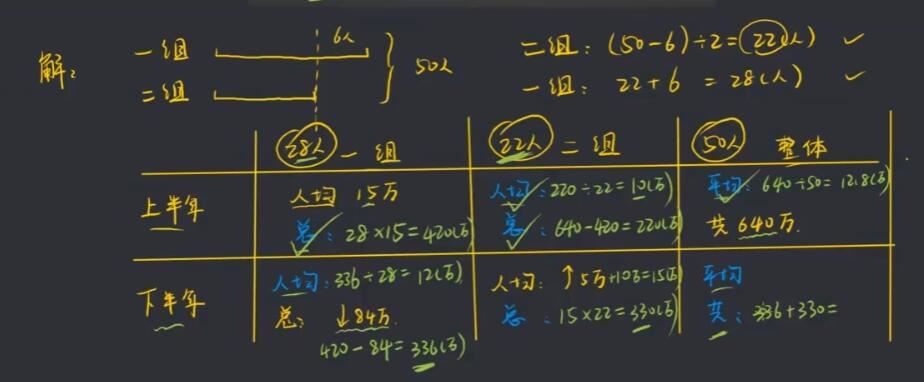 解：
一组
6人
二组
50人
二组：(50-6)÷2=22(人) ✓
一组：22+6=28(人) ✓
28人 一组
22人 二组
50人 整体
上半年
人均 15万
总：28×15=420(万)
人均：220÷22=10(万)
总：640-420=220(万)
平均：640÷50=12.8(万)
共 640万.
下半年
人均：336÷28=12(万)
总：↓84万.
420-84=336(万)
人均：↑5万+10万=15(万)
总：15×22=330(万)
平均
共：336+330=